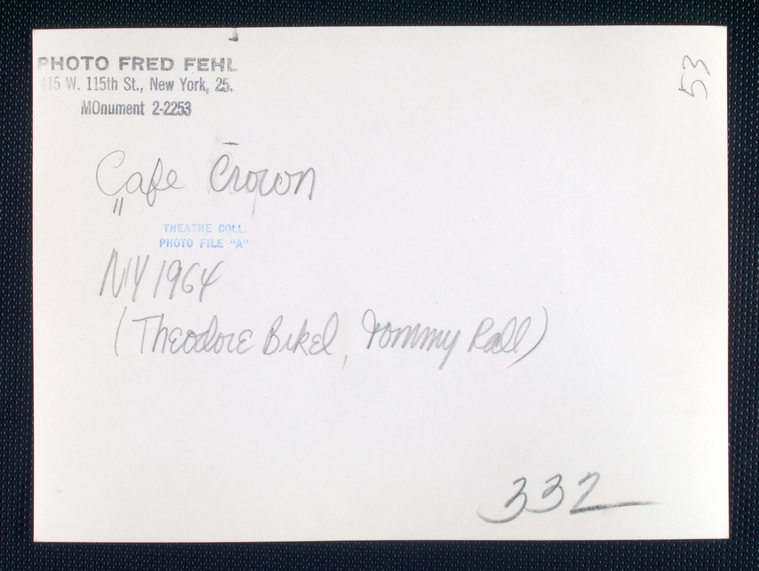 PHOTO FRED FEHL
415 W. 115th St., New York, 25.
MOnument 2-2253
53
Cafe Crown
THEATRE COLL.
PHOTO FILE "A"
NY 1964
(Theodore Bikel, Tommy Rall)
332